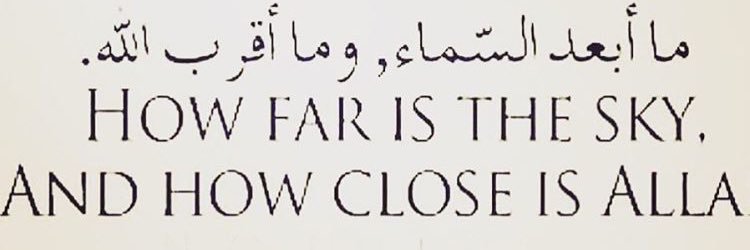 ما أبعد السّماء, وما أقرب الله.
HOW FAR IS THE SKY,
AND HOW CLOSE IS ALLA